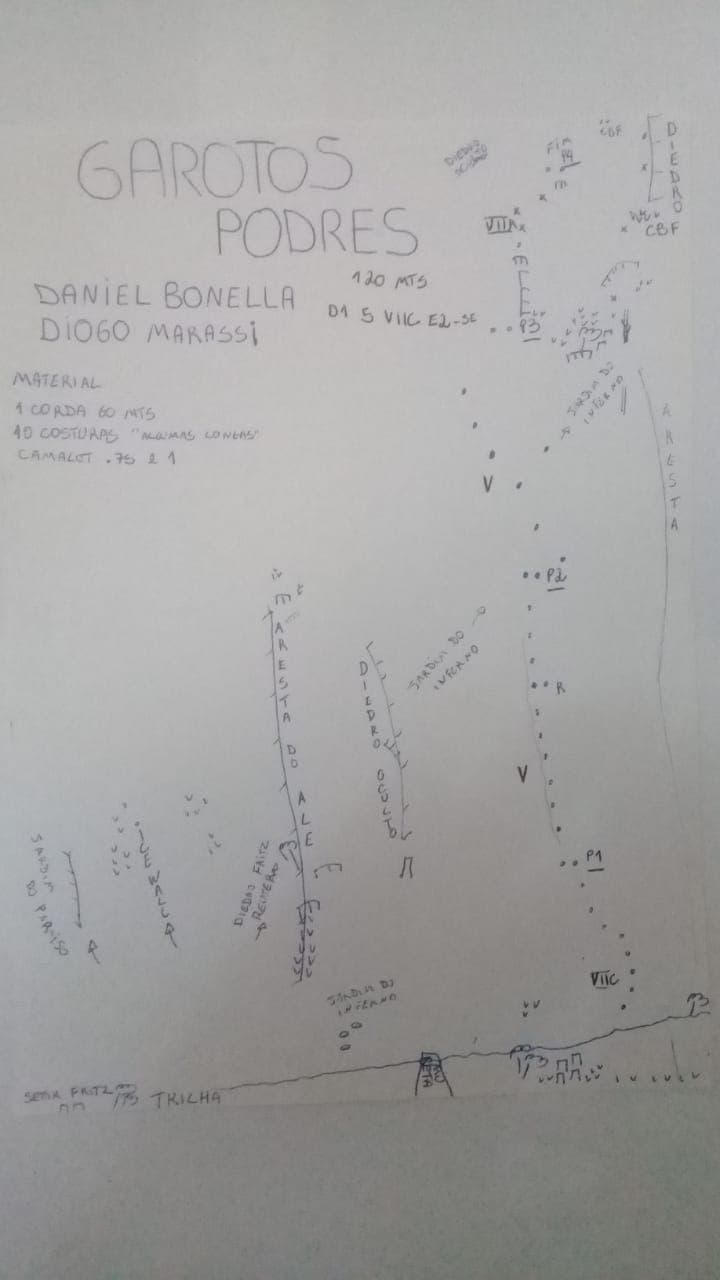 GAROTOS
PODRES
DANIEL BONELLA
DIOGO MARASSI
120 MTS
D1 5 VIIC E2-SE
MATERIAL
1 CORDA 60 MTS
10 COSTURAS "ALGUMAS LONGAS"
CAMALOT .75 e 1
CBF
DIEDRO
Fim
P4
VIIA
CBF
P3
JARDIM DO
INFERNO
ARESTA
V
P2
JARDIM DO
INFERNO
R
ARESTA DO ALE
DIEDRO OCULTO
V
P1
JARDIM
DO PARAISO
DIEDRO FRITZ
REINTERO
VIIC
JARDIM DO
INFERNO
SETOR FRITZ
TRILHA